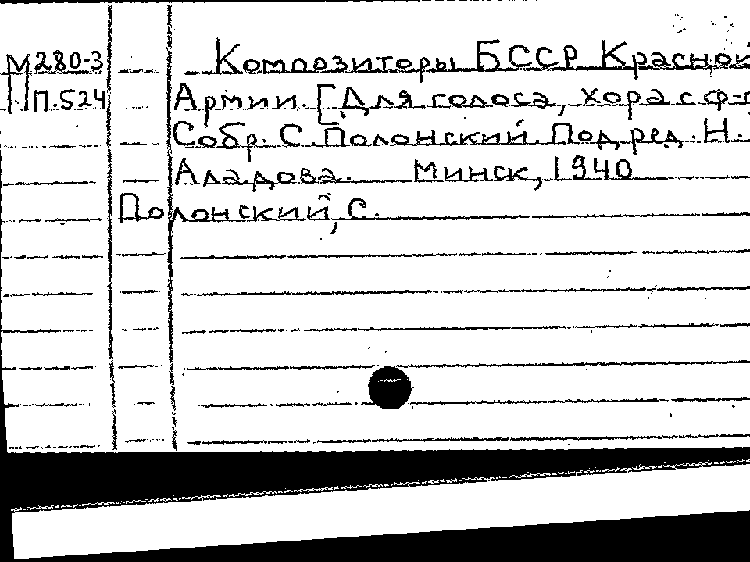 М280-3
П.524
Композиторы БССР Красной
Армии. [Для голоса, хора с ф-п
Собр. С. Полонский. Под ред. Н.
Аладова. Минск, 1940
Полонский, С.